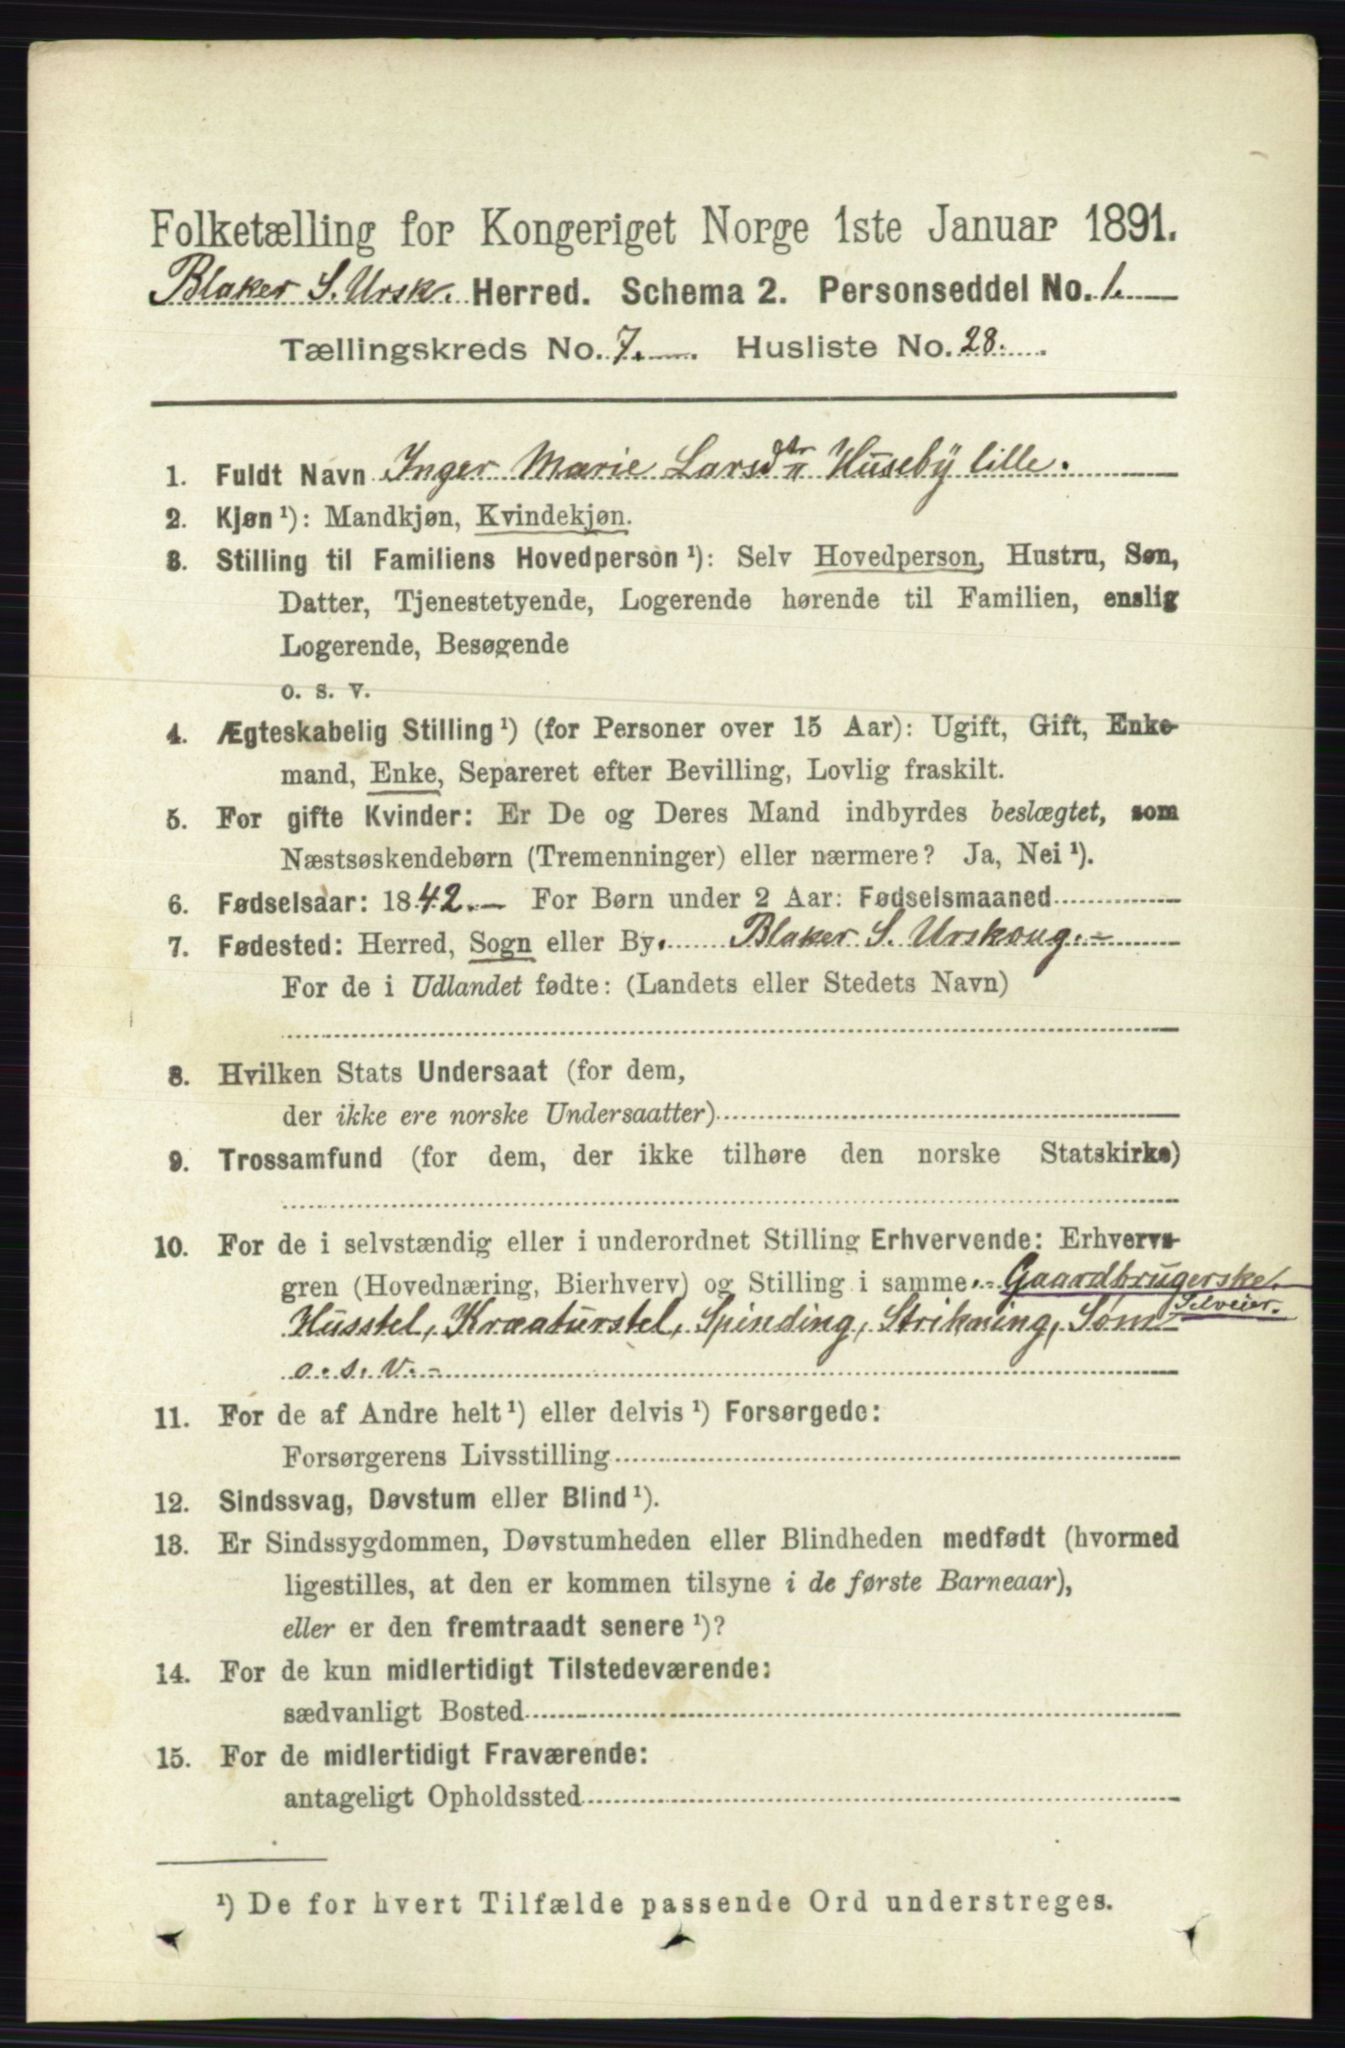 Folketælling for Kongeriget Norge 1ste Januar 1891.
Blaker S. Ursk. Herred. Schema 2. Personseddel No. 1.
Tællingskreds No. 7. Husliste No. 28.
1. Fuldt Navn Inger Marie Larsdtr Huseby lille.
2. Kjøn ¹): Mandkjøn, Kvindekjøn.
3. Stilling til Familiens Hovedperson ¹): Selv Hovedperson, Hustru, Søn,
Datter, Tjenestetyende, Logerende hørende til Familien, enslig
Logerende, Besøgende
o. s. v.
4. Ægteskabelig Stilling ¹) (for Personer over 15 Aar): Ugift, Gift, Enke-
mand, Enke, Separeret efter Bevilling, Lovlig fraskilt.
5. For gifte Kvinder: Er De og Deres Mand indbyrdes beslægtet, som
Næstsøskendebørn (Tremenninger) eller nærmere? Ja, Nei ¹).
6. Fødselsaar: 1842.- For Børn under 2 Aar: Fødselsmaaned
7. Fødested: Herred, Sogn eller By. Blaker S. Urskoug.-
For de i Udlandet fødte: (Landets eller Stedets Navn)
8. Hvilken Stats Undersaat (for dem,
der ikke ere norske Undersaatter)
9. Trossamfund (for dem, der ikke tilhøre den norske Statskirke)
10. For de i selvstændig eller i underordnet Stilling Erhvervende: Erhvervs-
gren (Hovednæring, Bierhverv) og Stilling i samme.- Gaardbrugerske.
Selveier.
Husstel, Kreaturstel, Spinding, Strikning, Søm
o. s. v.-
11. For de af Andre helt ¹) eller delvis ¹) Forsørgede:
Forsørgerens Livsstilling
12. Sindssvag, Døvstum eller Blind ¹).
13. Er Sindssygdommen, Døvstumheden eller Blindheden medfødt (hvormed
ligestilles, at den er kommen tilsyne i de første Barneaar),
eller er den fremtraadt senere ¹)?
14. For de kun midlertidigt Tilstedeværende:
sædvanligt Bosted
15. For de midlertidigt Fraværende:
antageligt Opholdssted
¹) De for hvert Tilfælde passende Ord understreges.